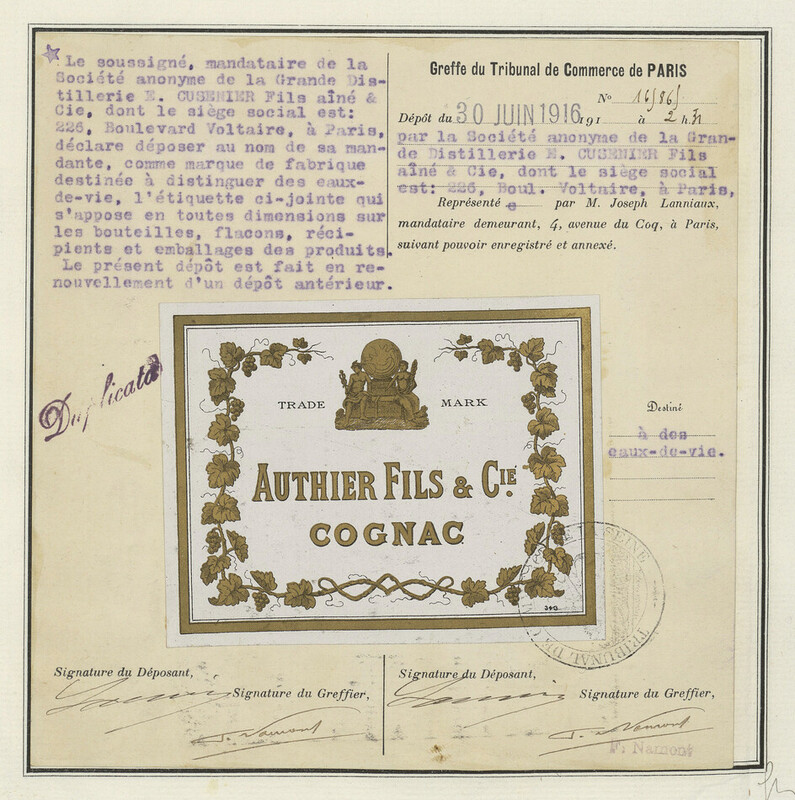 Le soussigné, mandataire de la
Société anonyme de la Grande Dis-
tillerie E. CUSENIER Fils aîné &
Cie, dont le siège social est:
226, Boulevard Voltaire, à Paris,
déclare déposer au nom de sa man-
dante, comme marque de fabrique
destinée à distinguer des eaux-
de-vie, l'étiquette ci-jointe qui
s'appose en toutes dimensions sur
les bouteilles, flacons, réci-
pients et emballages des produits.
Le présent dépôt est fait en re-
nouvellement d'un dépôt antérieur.
Greffe du Tribunal de Commerce de PARIS
No
Dépôt du 30 JUIN 1916 191 à 2 h.
par la Société anonyme de la Gran-
de Distillerie E. CUSENIER Fils
aîné & Cie, dont le siège social
est: 226, Boul. Voltaire, à Paris,
Représenté e par M. Joseph Lanniaux,
mandataire demeurant, 4, avenue du Coq, à Paris,
suivant pouvoir enregistré et annexé.
Duplicata
TRADE MARK
AUTHIER FILS & CIE.
COGNAC
340
Destiné
à des
eaux-de-vie.
SEINE
TRIBUNAL DE C
Signature du Déposant,
Signature du Greffier,
F. Namont
Signature du Déposant,
Signature du Greffier,
F. Namont
F. Namont